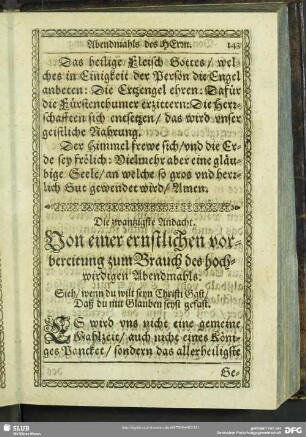 Abendmahls des HErrn. 143
Das heilige Fleisch Gottes/ wel
ches in Einigkeit der Person die Engel
anbeten: Die Ertzengel ehren: Dafür
die Fürstenthumer erzittern: Die Herr-
schafften sich entsetzen/ das wird vnser
geistliche Nahrung.
Der Himmel frewe sich/ vnd die Er-
de sey frölich: Vielmehr aber eine gläu-
bige Seele/ an welche so gros vnd herr-
lich Gut gewendet wird/ Amen.
Die zwantzigste Andacht.
Von einer ernstlichen vor-
bereitung zum Brauch des hoch-
wirdigen Abendmahls.
Sieh/ wenn du wilt seyn Christi Gast/
Daß du mit Glauben seyst gefast.
ES wird vns nicht eine gemeine
Mahlzeit/ auch nicht eines Köni-
ges Pancket/ sondern das allerheiligste
Ge-
SLUB
Wir führen Wissen.
gefördert von der
Deutschen Forschungsgemeinschaft
DFG